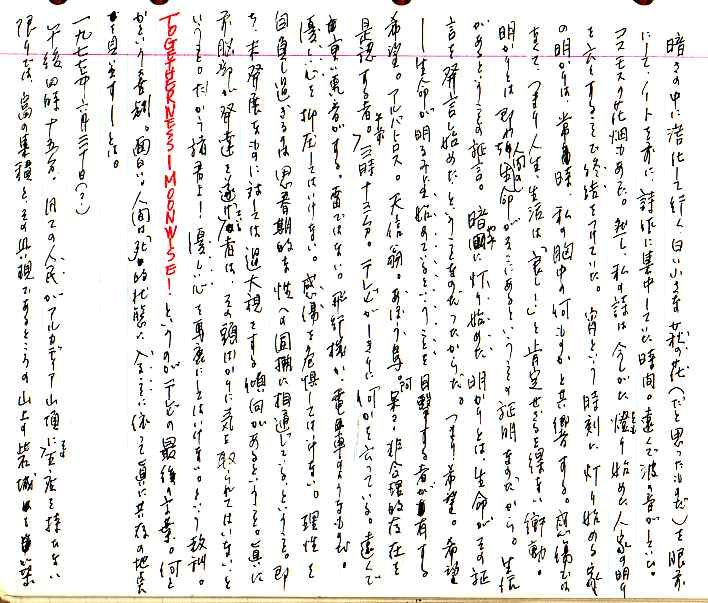 暗さの中に浩化して行く白い小さな萩の花(だと思ったものだ)を眼前
にして、ノートを前に、詩作に集中していた時間。遠くで波の音がしていた。
コスモスの花畑もあった。然し、私の詩は今しがた燈り始めた人家の明り
を云々することで終結をつけていた。宵という時刻に灯り始める家
の明かりは、常時、私の胸中の何ものかと共響する。感傷では
なくて、つまり人生、生活は「哀し!」と肯定せざるを得ない衝動。
明かりとは即わち人間の生命がそこにあるということの証明なのだから。生活
があるということの証言。暗闇に灯り始めた明かりとは、生命がその証
言を発言し始めたということなのだったからだ。つまり希望。希望
―生命が明るみに生き始めているということを目撃する者が有する
希望。アルバトロス。天信翁。あほう鳥。呆る。非合理的存在を
是認する者。午前三時十三分。テレビがしきりに何かを云っている。遠くで
車の轟音がする。雷ではない。飛行機か、電車のようなものだ。
優しい心を抑圧してはいけない。感傷を危惧してはいけない。理性を
自負し過ぎるのは思春期的な性への困惑に相通じているということ。即
ち、未発展なものに対しては過大視をする傾向があるということ。真に
頭脳が発達を遂げた者は、その頭ばかりに気を取られてはいないと
いうこと。だから諸君よ!優しい心を馬鹿にしてはいけない。という教訓。
TOGETHERNESS! MOONWISE! というのがテレビの最後の言葉。何と
かという喜劇。面白い。人間は死的状態に入ることに依って真に共存の地点
を見出す―とは。
一九七七年六月三十日(?)
午後四時十五分。凡ての人民がアルカディア山頂に住居を持たない
限りでは、富の集積と、その具現であるところの山上の岩城も